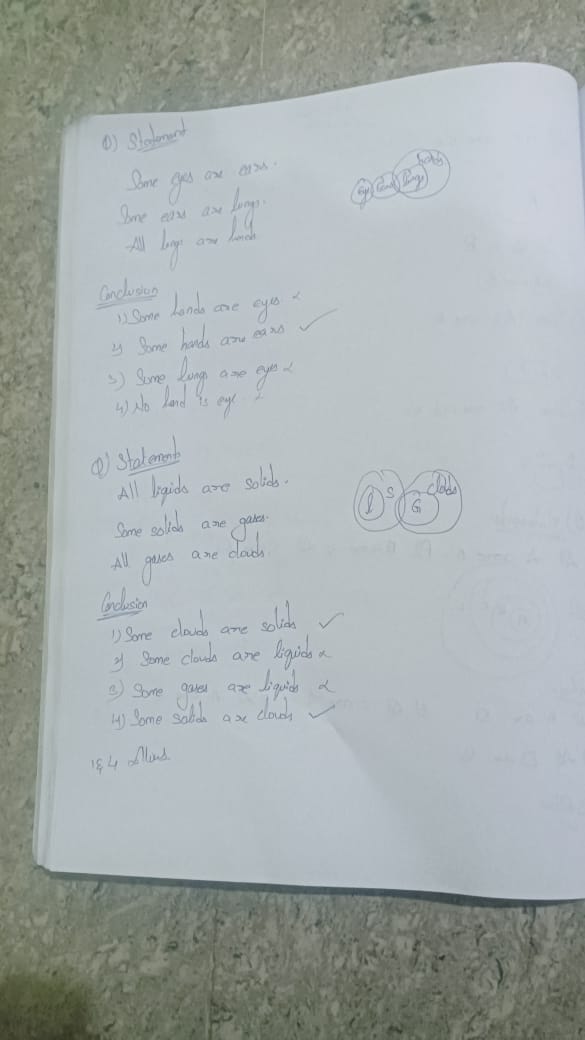 Q) Statement
Some eyes are ears.
Some ears are lungs.
All lungs are hands
Eye Ears lungs hands
Conclusion
1) Some hands are eyes. x
2) Some hands are ears ✓
3) Some lungs are eyes x
4) No hand is eye x
Q) Statements
All liquids are solids.
Some solids are gases.
All gases are clouds.
l S G clouds
Conclusion
1) Some clouds are solids ✓
2) Some clouds are liquids x
3) Some gases are liquids x
4) Some solids are clouds ✓
1 & 4 follows